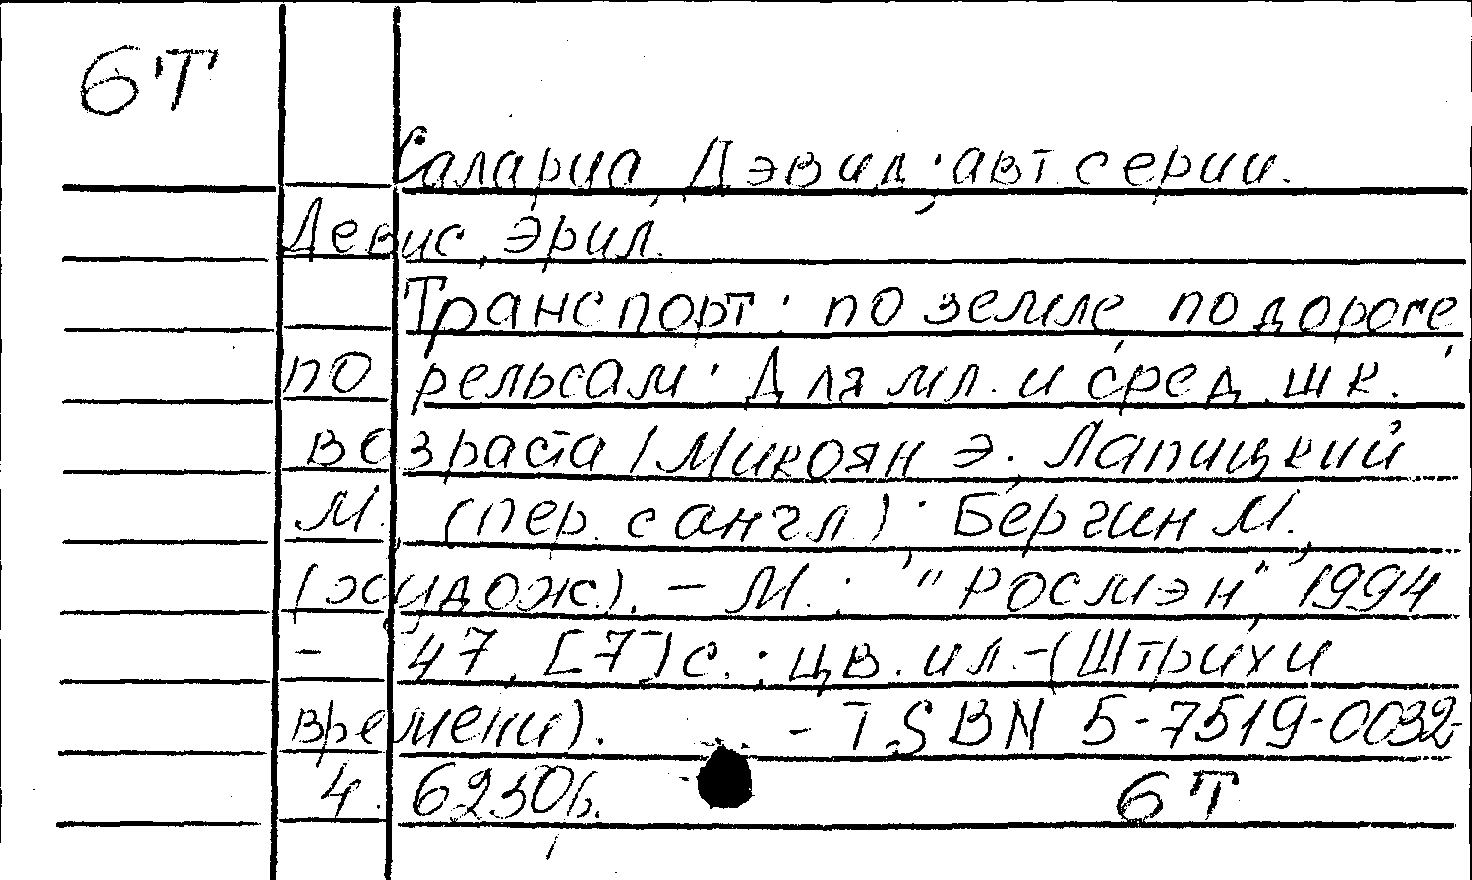 6Т
Салариа, Дэвид; авт. серии.
Девис, Эрил.
Транспорт: по земле по дороге,
по рельсам: Для мл. и сред. шк.
возраста / Микоян Э.; Лапицкий
М. (пер. с англ); Бергин М.,
(худож). - М.: "Росмэн", 1994
- 47, [7] с.: цв. ил. - (Штрихи
времени). - ISBN 5-7519-0032-
4. 6230р.
6Т